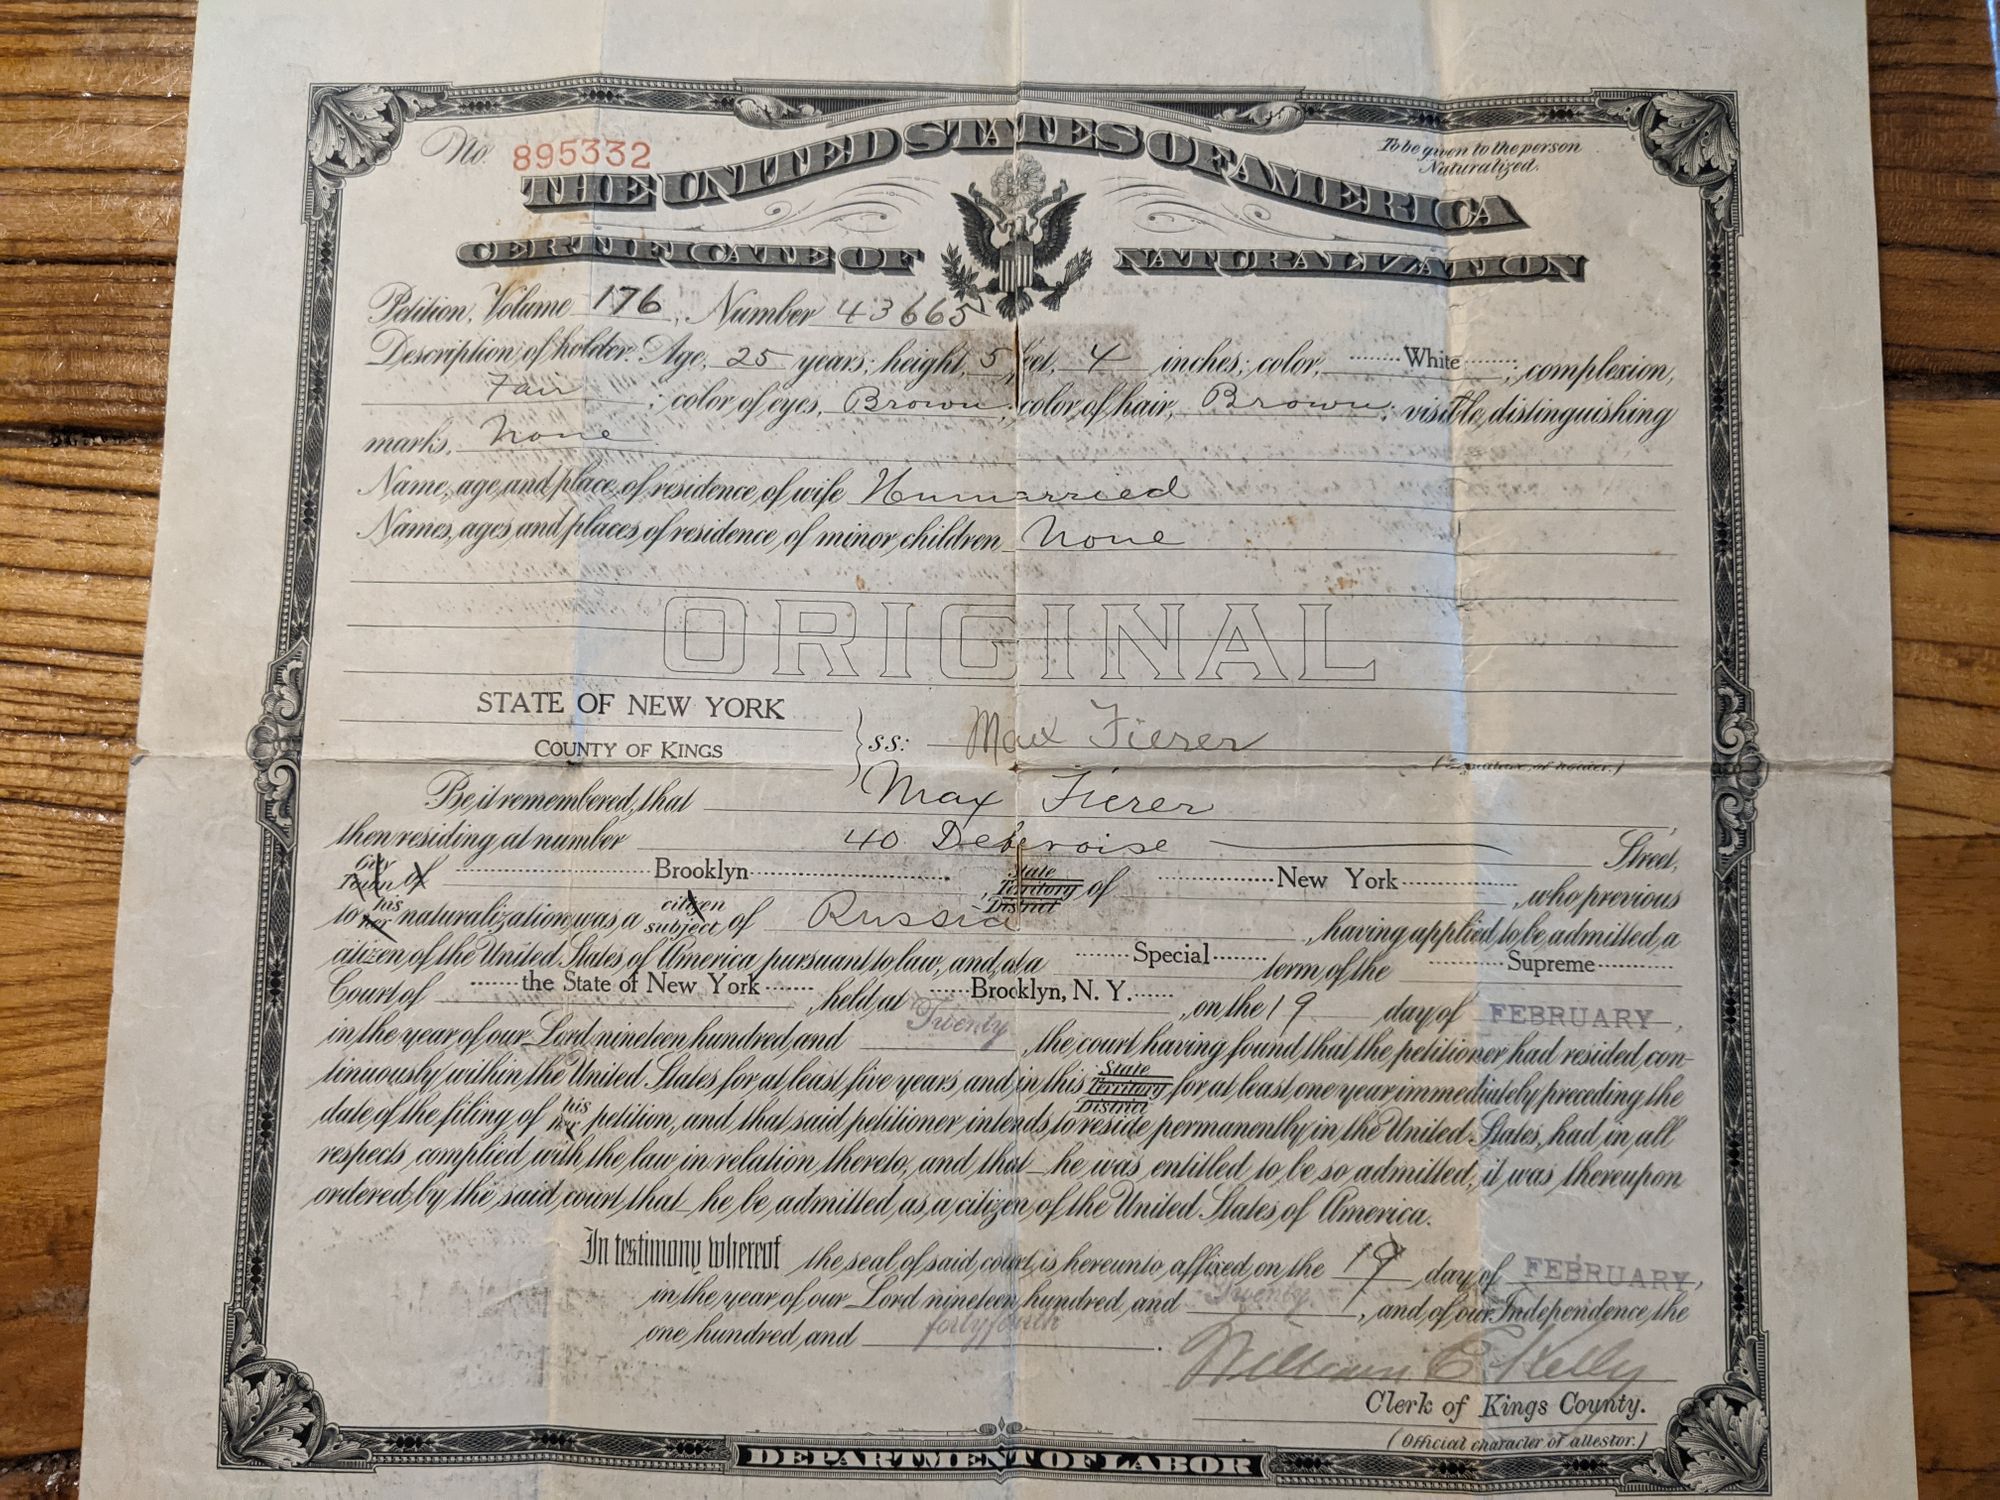 No. 895332
To be given to the person
Naturalized.
THE UNITED STATES OF AMERICA
CERTIFICATE OF NATURALIZATION
Petition, Volume 176, Number 43665
Description of holder: Age, 25 years; height, 5 feet, 4 inches; color, White; complexion,
Fair; color of eyes, Brown; color of hair, Brown; visible distinguishing
marks, None
Name, age and place of residence of wife Unmarried
Names, ages and places of residence of minor children None
ORIGINAL
STATE OF NEW YORK
COUNTY OF KINGS
ss: Max Fierer
(Signature of holder.)
Be it remembered, that Max Fierer
then residing at number 40 Debevoise Street,
City Town of Brooklyn, State Territory District of New York, who previous
to his her naturalization was a citizen subject of Russia, having applied to be admitted a
citizen of the United States of America pursuant to law, and at a Special term of the Supreme
Court of the State of New York, held at Brooklyn, N. Y., on the 19 day of FEBRUARY,
in the year of our Lord nineteen hundred and Twenty, the court having found that the petitioner had resided con-
tinuously within the United States for at least five years and in this State Territory District for at least one year immediately preceding the
date of the filing of his her petition, and that said petitioner intends to reside permanently in the United States, had in all
respects complied with the law in relation thereto, and that he was entitled to be so admitted, it was thereupon
ordered by the said court that he be admitted as a citizen of the United States of America.
In testimony whereof the seal of said court is hereunto affixed on the 19 day of FEBRUARY,
in the year of our Lord nineteen hundred and Twenty, and of our Independence the
one hundred and fortyfourth.
William E. Kelly
Clerk of Kings County.
(Official character of attestor.)
DEPARTMENT OF LABOR